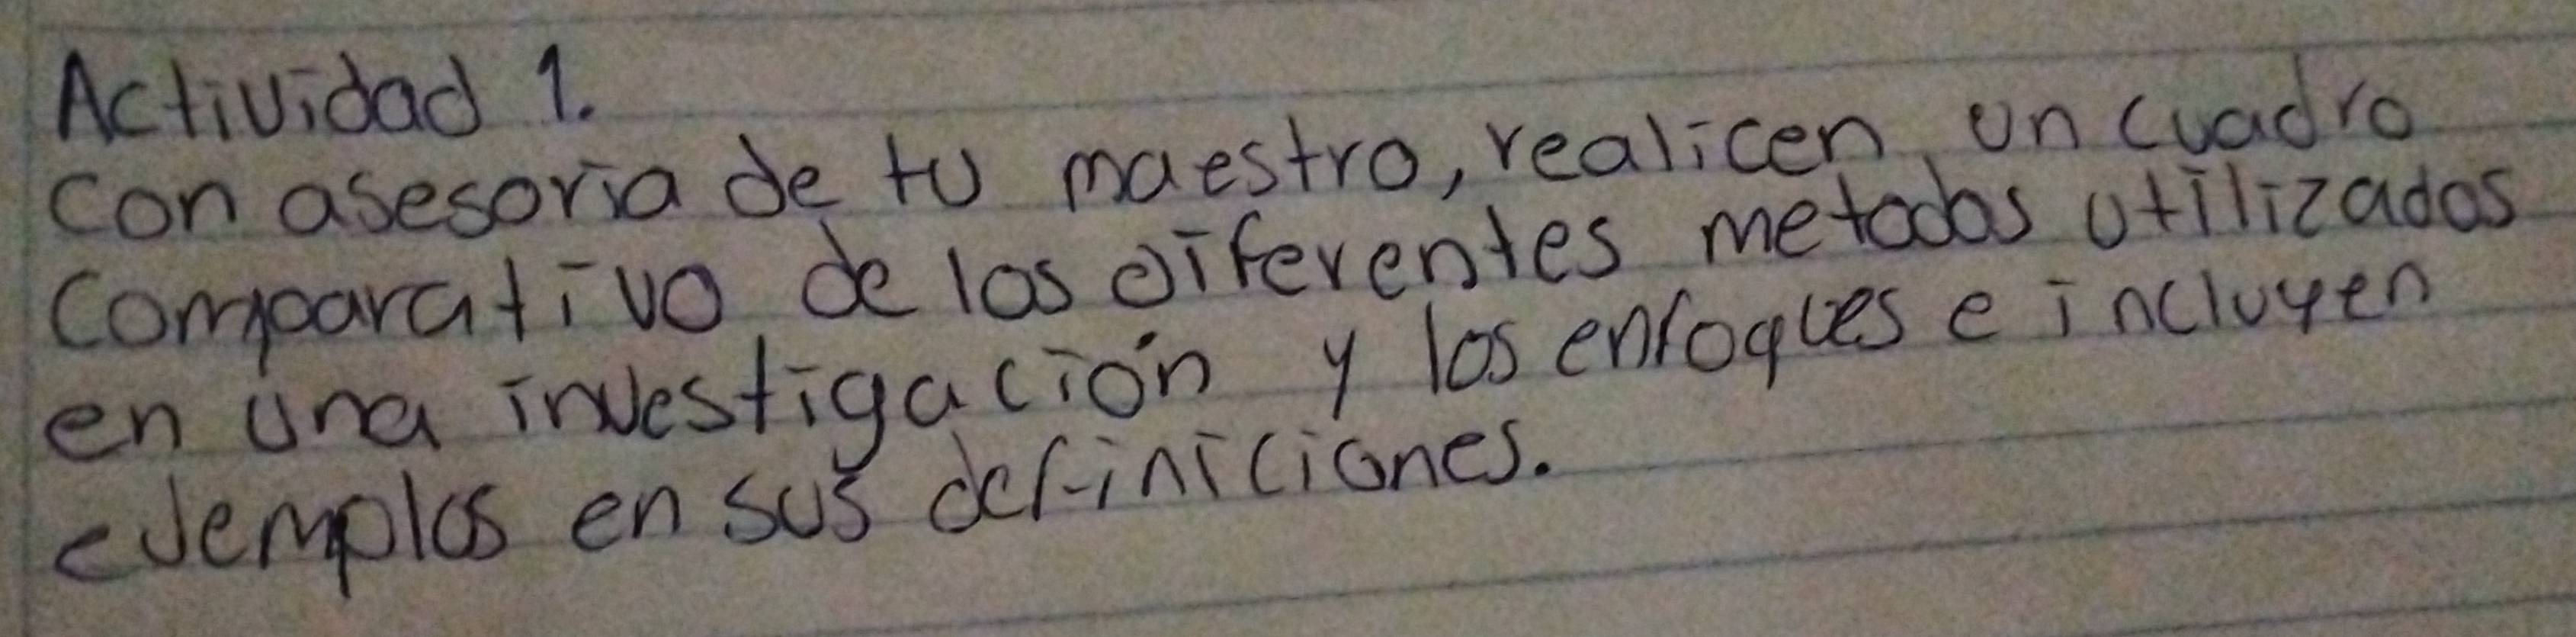 Actividad 1.
con asesoria de tu maestro, realicen un cuadro
comparativo de los diferentes metodos utilizados
en una investigación y los enfoques e incluyen
ejemplos en sus definiciones.